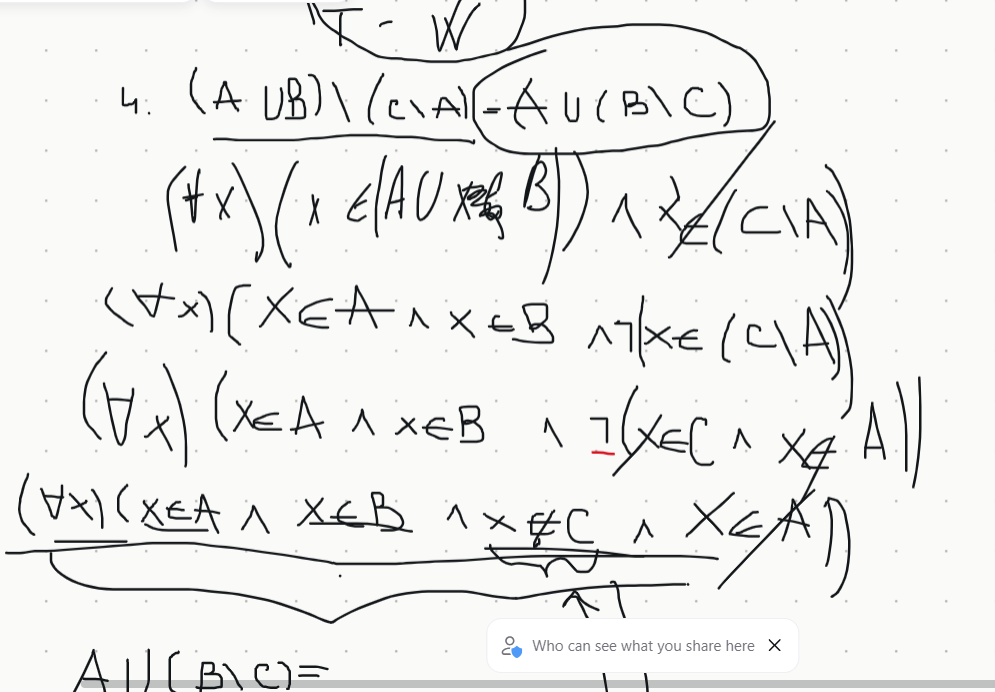 T - W
4. (A ∪ B) \ (C \ A) = A ∪ (B \ C)
(∀x)(x ∈ (A ∪ B)) ∧ x ∉ (C \ A))
(∀x)(x ∈ A ∧ x ∈ B ∧ ¬(x ∈ (C \ A))
(∀x)(x ∈ A ∧ x ∈ B ∧ ¬(x ∈ C ∧ x ∉ A))
(∀x)(x ∈ A ∧ x ∈ B ∧ x ∉ C ∧ x ∈ A))
Who can see what you share here
A ∪ (B \ C) =